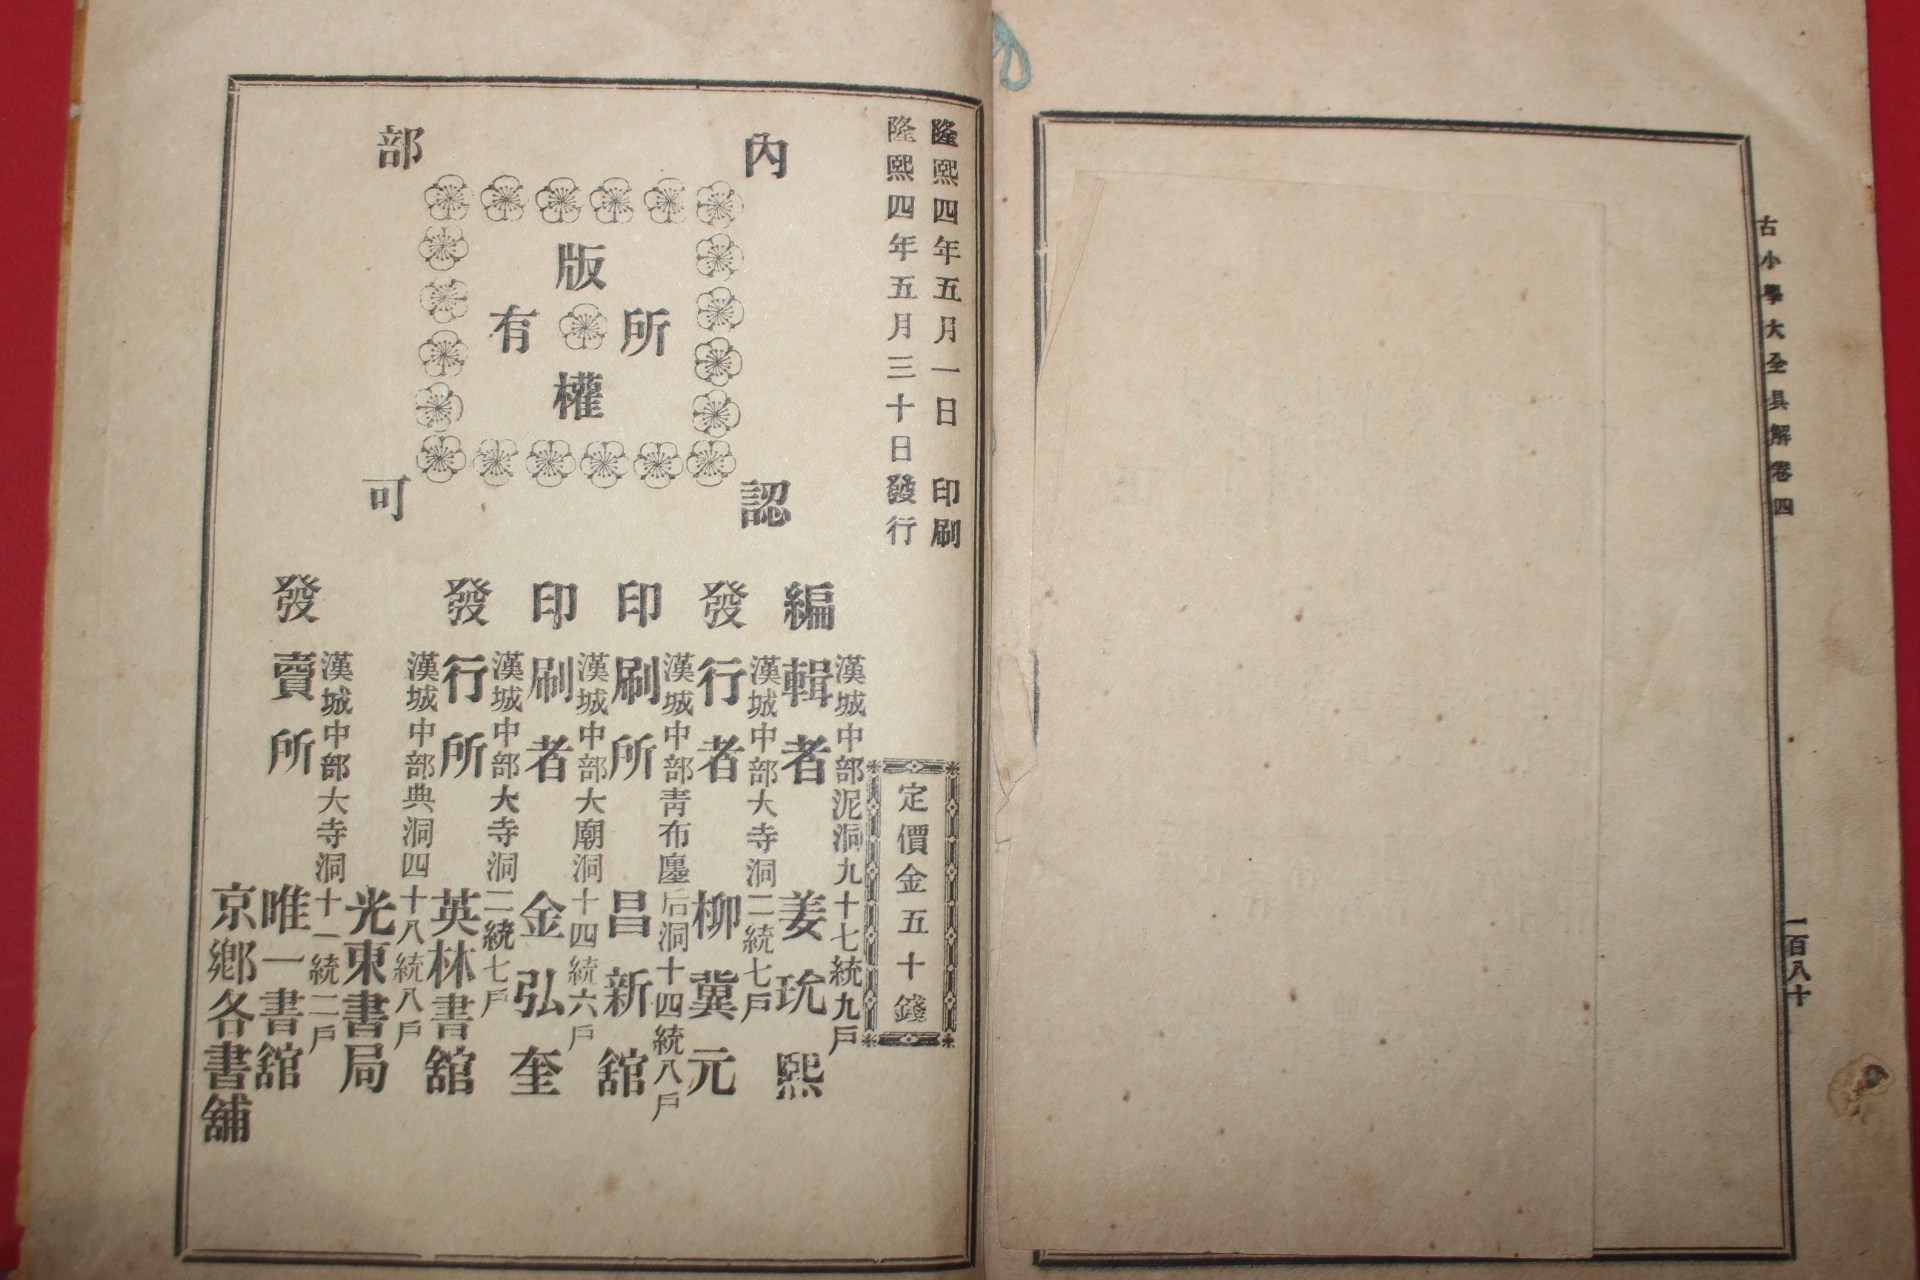 古小學大全具解卷四
一百八十
隆熙四年五月一日　印刷
隆熙四年五月三十日發行
定價金五十錢
內部認可
版權所有
漢城中部泥洞九十七統九戶
編輯者　姜玧熙
漢城中部大寺洞二統七戶
發行者　柳冀元
漢城中部靑布廛后洞十四統八戶
印刷所　昌新舘
漢城中部大廟洞十四統六戶
印刷者　金弘奎
漢城中部大寺洞二統七戶
發行所　英林書舘
漢城中部典洞四十八統八戶
光東書局
漢城中部大寺洞十一統二戶
發賣所　唯一書舘
京鄕各書舖